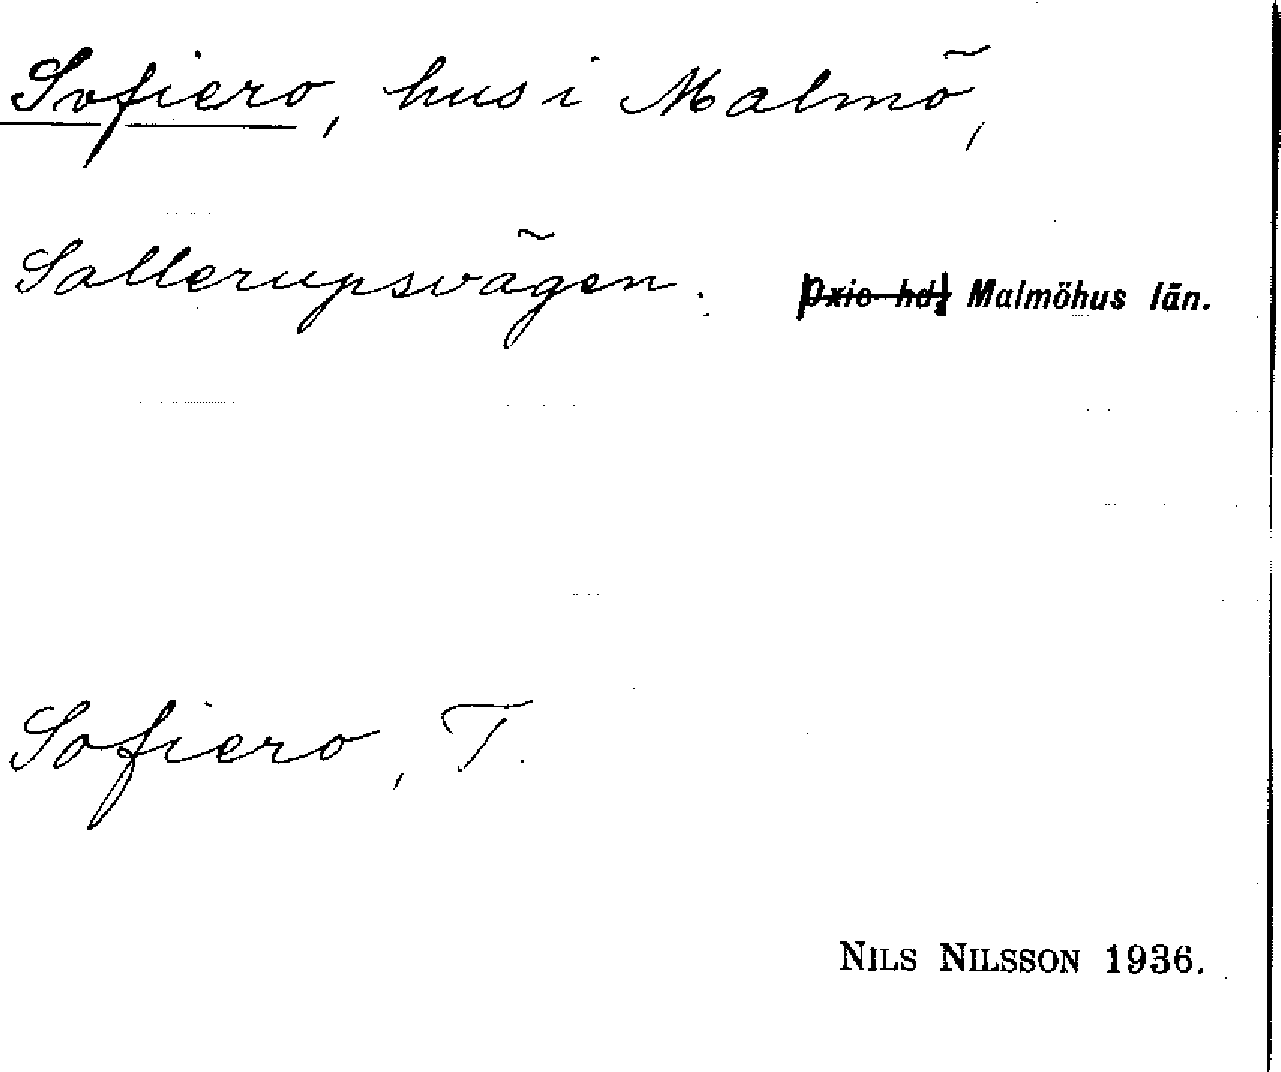 Sofiero, hus i Malmö,
Sallerupsvägen. Oxie hd, Malmöhus län.
Sofiero, T.
NILS NILSSON 1936.